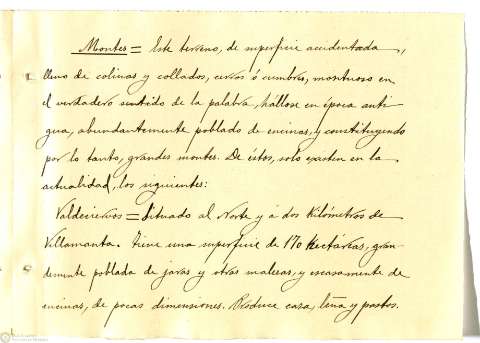 Montes = Este terreno, de superficie accidentada,
lleno de colinas y collados, cerros ó cumbres, montuoso en
el verdadero sentido de la palabra, hállose en época anti-
gua, abundantemente poblado de encinas, y constituyendo
por lo tanto, grandes montes. De éstos, solo existen en la
actualidad, los siguientes:
Valdeciervos = Situado al Norte y a dos Kilómetros de
Villamanta. Tiene una superficie de 170 Hectáreas, gran-
demente poblada de jaras y otras malezas, y escasamente de
encinas, de pocas dimensiones. Produce caza, leña y pastos.